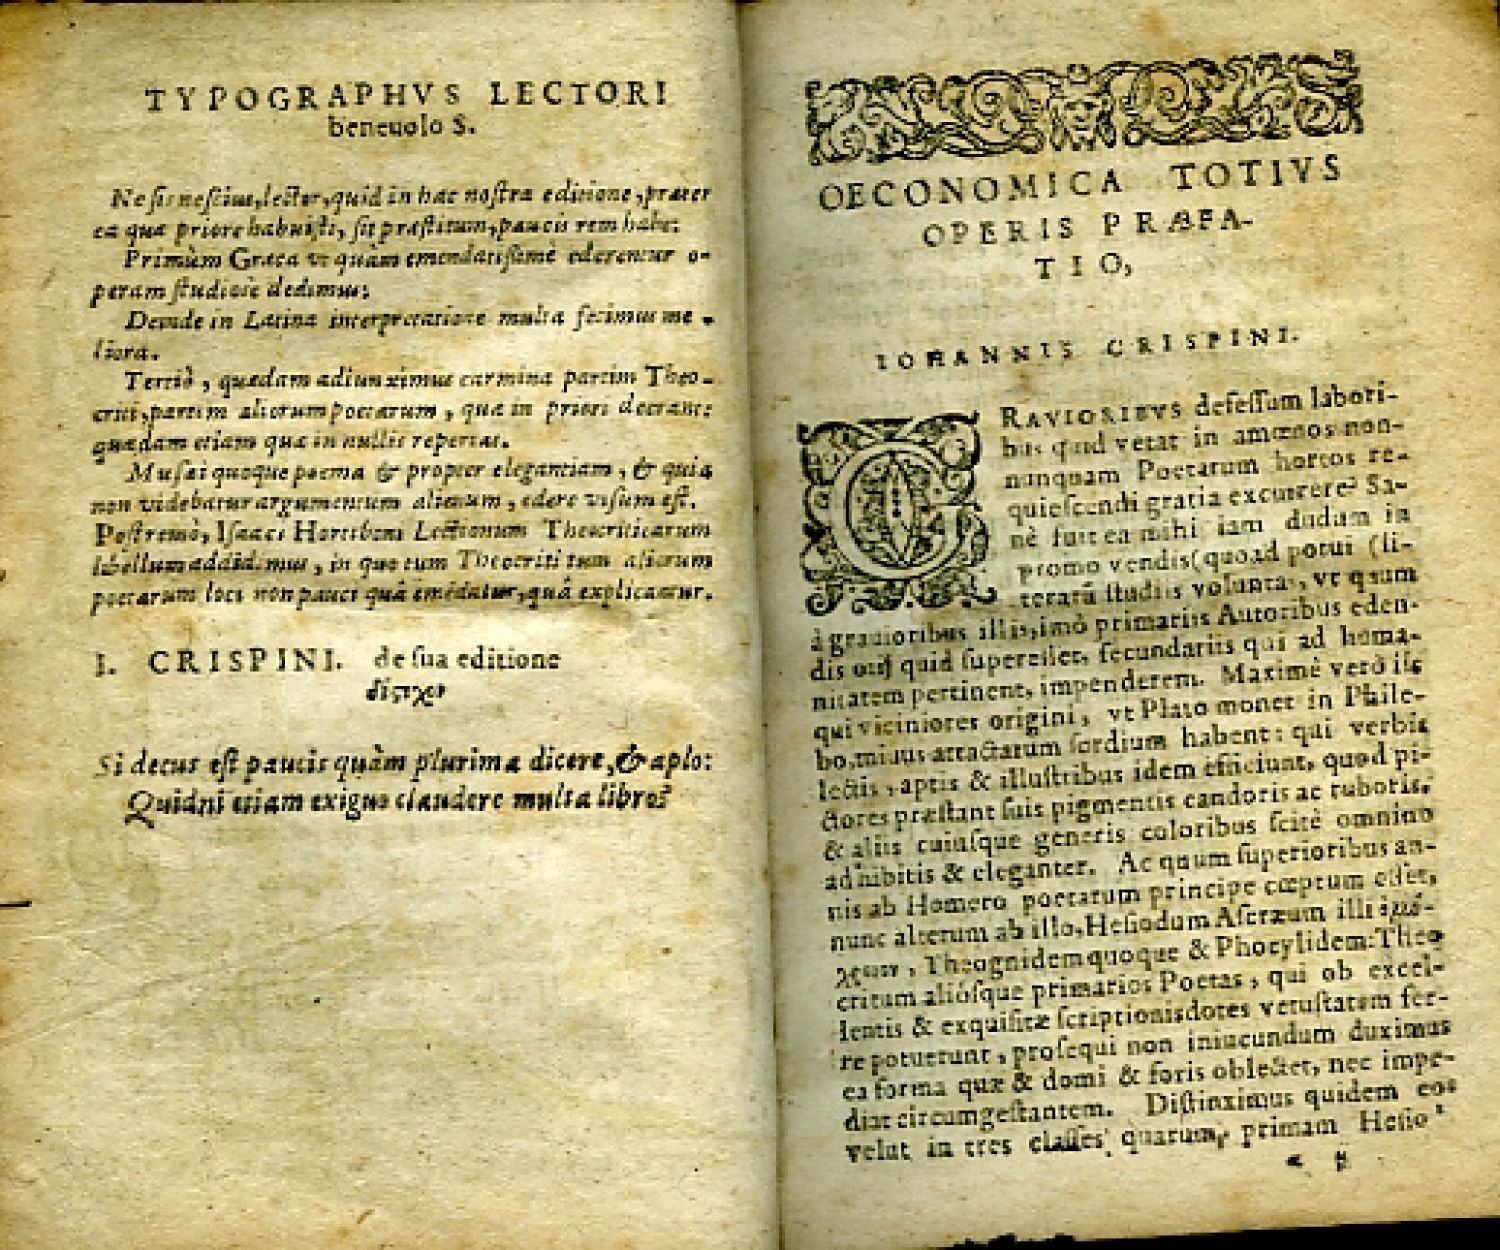 TYPOGRAPHVS LECTORI
beneuolo S.
Ne sis nescius, lector, quid in hac nostra editione, præter
ea quæ priore habuisti, sit præstitum, paucis rem habe:
Primùm Græca vt quàm emendatissimè ederentur o-
peram studiosè dedimus:
Deinde in Latina interpretatione multa fecimus me-
liora.
Tertiò, quædam adiunximus carmina partim Theo-
criti, partim aliorum poetarum, quæ in priori deerant:
quædam etiam quæ in nullis reperias.
Musæi quoque poema & propter elegantiam, & quia
non videbatur argumentum alienum, edere visum est.
Postremò, Isaaci Hortiboni Lectionum Theocriticarum
libellum addidimus, in quo cum Theocriti tum aliorum
poetarum loci non pauci quà emēdātur, quà explicantur.
I. CRISPINI. de sua editione
δίςιχον
Si decus est paucis quàm plurima dicere, & aplo:
Quidni etiam exiguo claudere multa libro?
OECONOMICA TOTIVS
OPERIS PRÆFA-
TIO,
IOHANNIS CRISPINI.
GRAVIORIBVS defessum labori-
bus quid vetat in amœnos non-
nunquam Poetarum hortos re-
quiescendi gratia excurrere? Sa-
nè fuit ea mihi iam dudum in
promouendis (quoad potui (li-
terarū studiis voluntas, vt quum
à grauioribus illis, imò primariis Autoribus eden-
dis otij quid superesset, secundariis qui ad huma-
nitatem pertinent, impenderem. Maximè verò iis
qui viciniores origini, vt Plato monet in Phile-
bo, minus attactarum sordium habent: qui verbis
lectis, aptis & illustribus idem efficiunt, quod pi-
ctores præstant suis pigmentis candoris ac ruboris,
& aliis cuiusque generis coloribus scitè omnino
adhibitis & eleganter. Ac quum superioribus an-
nis ab Homero poetarum principe cœptum esset,
nunc alterum ab illo, Hesiodum Ascræum illi
, Theognidem quoque & Phocylidem: Theo
critum aliósque primarios Poetas, qui ob excel-
lentis & exquisitæ scriptionis dotes vetustatem fer-
re potuerunt, prosequi non iniucundum duximus
ea forma quæ & domi & foris oblectet, nec impe-
diat circumgestantem. Distinximus quidem eos
velut in tres classes, quarum primam Hesio